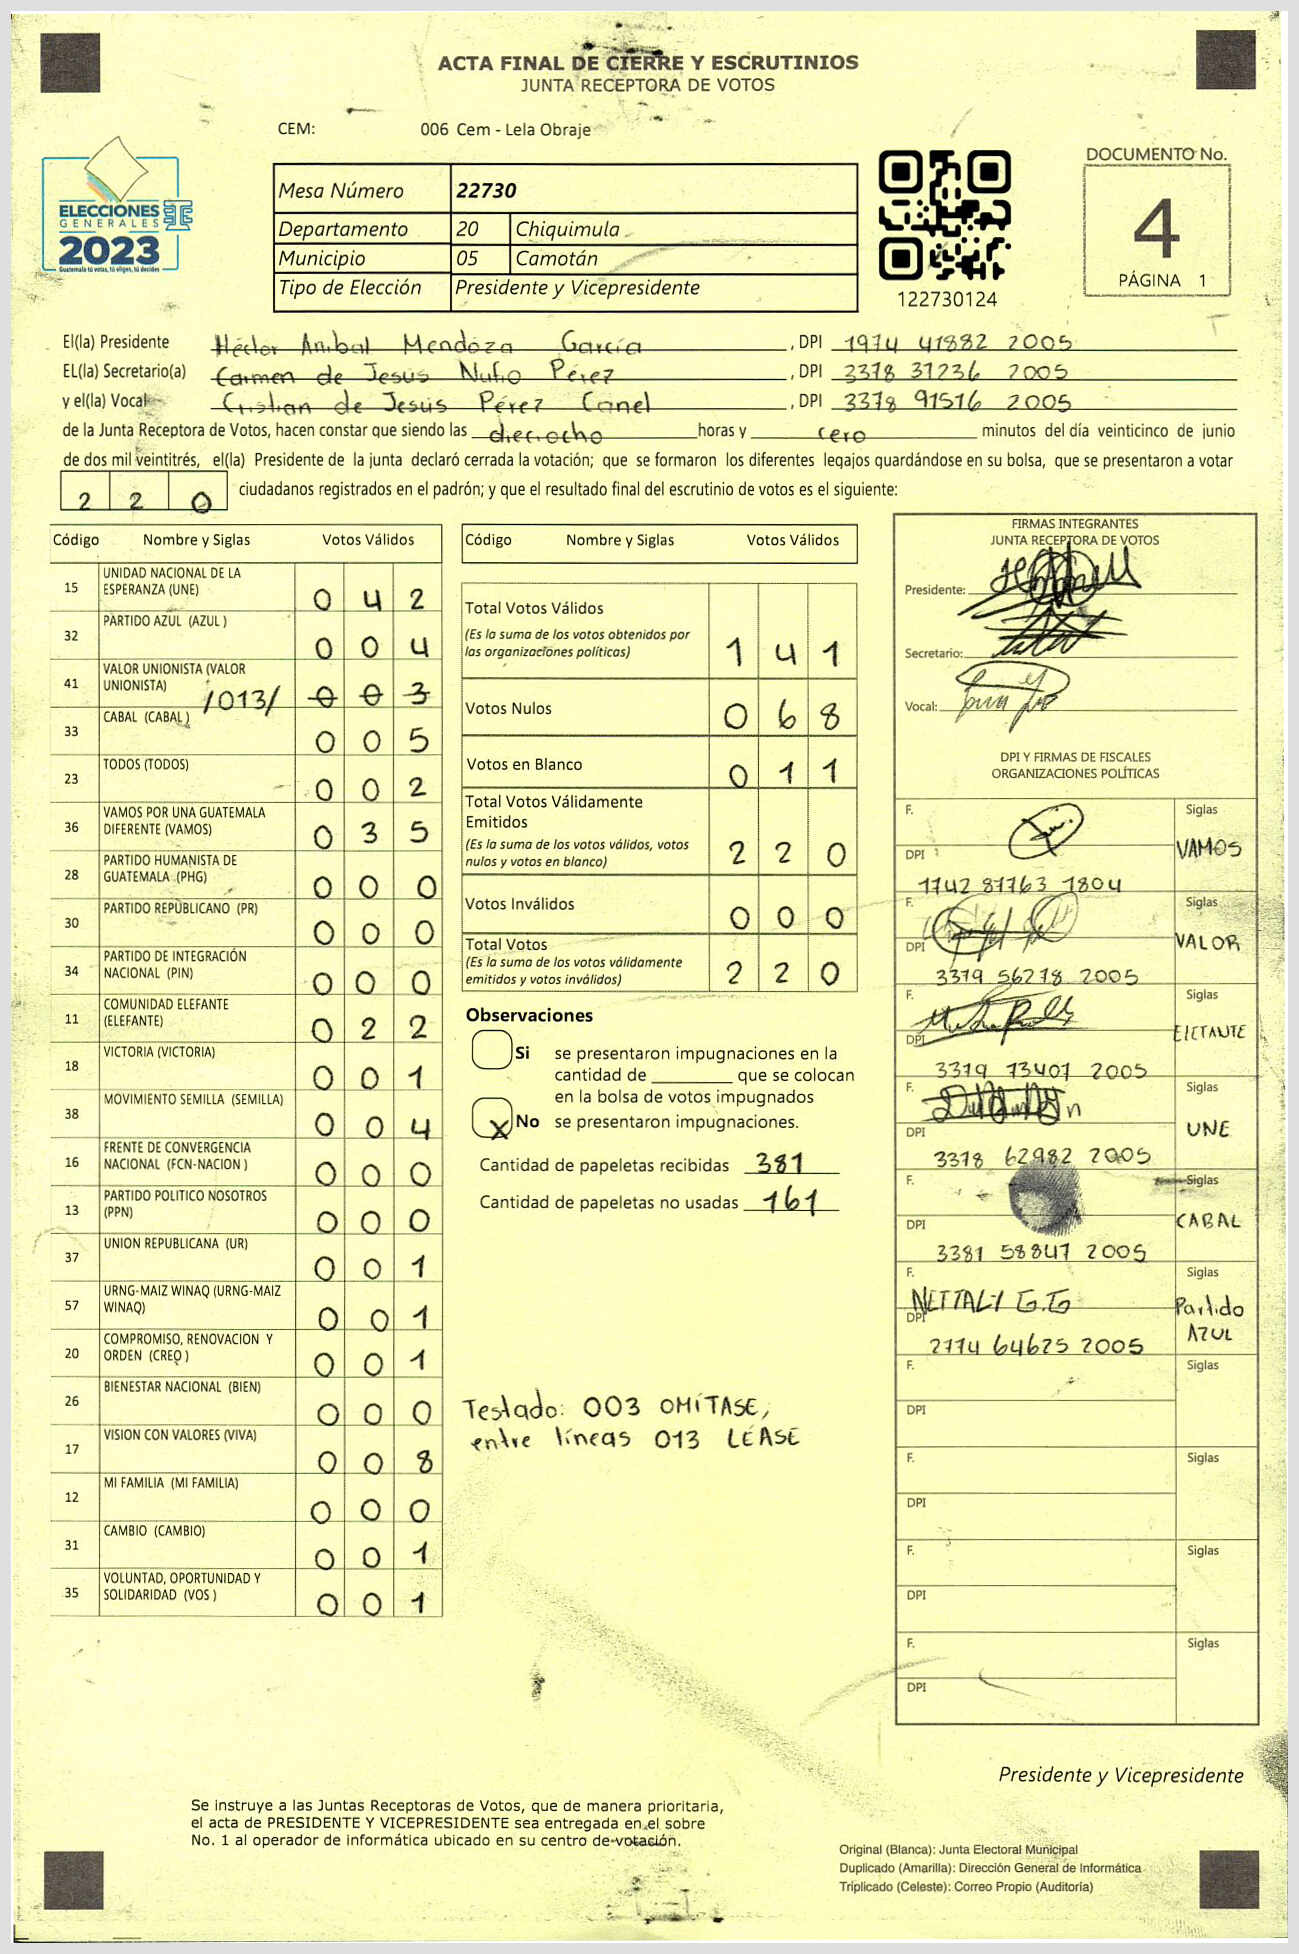 ACTA FINAL DE CIERRE Y ESCRUTINIOS
JUNTA RECEPTORA DE VOTOS
CEM: 006 Cem - Lela Obraje
ELECCIONES
GENERALES
2023
Guatemala tú votas, tú eliges, tú decides
Mesa Número 22730
Departamento 20 Chiquimula
Municipio 05 Camotán
Tipo de Elección Presidente y Vicepresidente
122730124
DOCUMENTO No.
4
PÁGINA 1
El(la) Presidente Héctor Anibal Mendoza García , DPI 1974 41882 2005
EL(la) Secretario(a) Carmen de Jesús Nufio Pérez , DPI 3378 37236 2005
y el(la) Vocal Cristian de Jesús Pérez Canel , DPI 3378 91516 2005
de la Junta Receptora de Votos, hacen constar que siendo las dieciocho horas y cero minutos del día veinticinco de junio
de dos mil veintitrés, el(la) Presidente de la junta declaró cerrada la votación; que se formaron los diferentes legajos guardándose en su bolsa, que se presentaron a votar
2 2 0 ciudadanos registrados en el padrón; y que el resultado final del escrutinio de votos es el siguiente:
Código Nombre y Siglas Votos Válidos
15 UNIDAD NACIONAL DE LA
ESPERANZA (UNE) 0 4 2
32 PARTIDO AZUL (AZUL ) 0 0 4
41 VALOR UNIONISTA (VALOR
UNIONISTA) /013/ 0 0 3
33 CABAL (CABAL ) 0 0 5
23 TODOS (TODOS) 0 0 2
36 VAMOS POR UNA GUATEMALA
DIFERENTE (VAMOS) 0 3 5
28 PARTIDO HUMANISTA DE
GUATEMALA (PHG) 0 0 0
30 PARTIDO REPUBLICANO (PR) 0 0 0
34 PARTIDO DE INTEGRACIÓN
NACIONAL (PIN) 0 0 0
11 COMUNIDAD ELEFANTE
(ELEFANTE) 0 2 2
18 VICTORIA (VICTORIA) 0 0 1
38 MOVIMIENTO SEMILLA (SEMILLA) 0 0 4
16 FRENTE DE CONVERGENCIA
NACIONAL (FCN-NACION ) 0 0 0
13 PARTIDO POLITICO NOSOTROS
(PPN) 0 0 0
37 UNION REPUBLICANA (UR) 0 0 1
57 URNG-MAIZ WINAQ (URNG-MAIZ
WINAQ) 0 0 1
20 COMPROMISO, RENOVACION Y
ORDEN (CREO ) 0 0 1
26 BIENESTAR NACIONAL (BIEN) 0 0 0
17 VISION CON VALORES (VIVA) 0 0 8
12 MI FAMILIA (MI FAMILIA) 0 0 0
31 CAMBIO (CAMBIO) 0 0 1
35 VOLUNTAD, OPORTUNIDAD Y
SOLIDARIDAD (VOS ) 0 0 1
Código Nombre y Siglas Votos Válidos
Total Votos Válidos
(Es la suma de los votos obtenidos por
las organizaciones políticas) 1 4 1
Votos Nulos 0 6 8
Votos en Blanco 0 1 1
Total Votos Válidamente
Emitidos
(Es la suma de los votos válidos, votos
nulos y votos en blanco) 2 2 0
Votos Inválidos 0 0 0
Total Votos
(Es la suma de los votos válidamente
emitidos y votos inválidos) 2 2 0
Observaciones
Si se presentaron impugnaciones en la
cantidad de ________ que se colocan
en la bolsa de votos impugnados
X No se presentaron impugnaciones.
Cantidad de papeletas recibidas 381
Cantidad de papeletas no usadas 161
Testado: 003 OMÍTASE,
entre líneas 013 LÉASE
FIRMAS INTEGRANTES
JUNTA RECEPTORA DE VOTOS
Presidente:
Secretario:
Vocal:
DPI Y FIRMAS DE FISCALES
ORGANIZACIONES POLÍTICAS
F. Siglas
VAMOS
DPI
1742 87763 1804
F. Siglas
VALOR
DPI
3379 56278 2005
F. Siglas
ELEFANTE
DPI
3379 73407 2005
F. Siglas
UNE
DPI
3378 62982 2005
F. Siglas
CABAL
DPI
3381 58847 2005
F. NEFTALY G.G Siglas
Partido
AZUL
DPI
2774 64625 2005
F. Siglas
DPI
F. Siglas
DPI
F. Siglas
DPI
F. Siglas
DPI
Presidente y Vicepresidente
Se instruye a las Juntas Receptoras de Votos, que de manera prioritaria,
el acta de PRESIDENTE Y VICEPRESIDENTE sea entregada en el sobre
No. 1 al operador de informática ubicado en su centro de votación.
Original (Blanca): Junta Electoral Municipal
Duplicado (Amarilla): Dirección General de Informática
Triplicado (Celeste): Correo Propio (Auditoría)